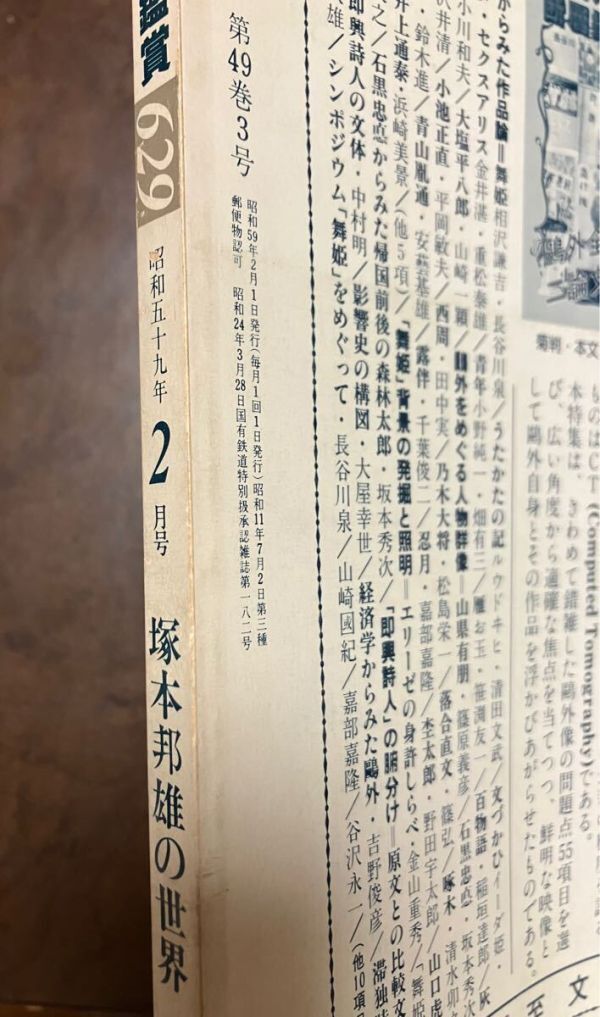 鑑賞
629
昭和五十九年
2
月号
塚本邦雄の世界
第49巻3号
昭和59年2月1日発行(毎月1回1日発行)昭和11年7月2日第三種
郵便物認可 昭和24年3月28日国有鉄道特別扱承認雑誌第一八二号
菊判・本文
ものはCT(Computed Tomography)である。
本特集は、きわめて錯雑した鷗外像の問題点55項目を選
び、広い角度から適確な焦点を当てつつ、鮮明な映像と
して鷗外自身とその作品を浮かびあがらせたものである。
からみた作品論=舞姫相沢謙吉・長谷川泉/うたかたの記ルウドヰヒ・清田文武/文づかひイーダ姫・
・セクスアリス金井湛・重松泰雄/青年小野純一・畑有三/雁お玉・笹淵友一/百物語・稲垣達郎/灰
小川和夫/大塩平八郎・山崎一穎/鷗外をめぐる人物群像=山県有朋・篠原義彦/石黒忠悳・坂本秀次
沢井清/小池正直・平岡敏夫/西周・田中実/乃木大将・松島栄一/落合直文・篠弘/啄木・清水卯
・鈴木進/青山胤通・安萩基雄/露伴・千葉俊二/忍月・嘉部嘉隆/杢太郎・野田宇太郎/山口虎
井上通泰・浜崎美景/(他5項)/「舞姫」背景の発掘と照明=エリーゼの身許しらべ・金山重秀/「舞姫
之/石黒忠悳からみた帰国前後の森林太郎・坂本秀次/「即興詩人」の腑分け=原文との比較文
即興詩人の文体・中村明/影響史の構図・大屋幸世/経済学からみた鷗外・吉野俊彦/滞独時
雄/シンポジウム「舞姫」をめぐって・長谷川泉/山崎國紀/嘉部嘉隆/谷沢永一/(他10項目
至文